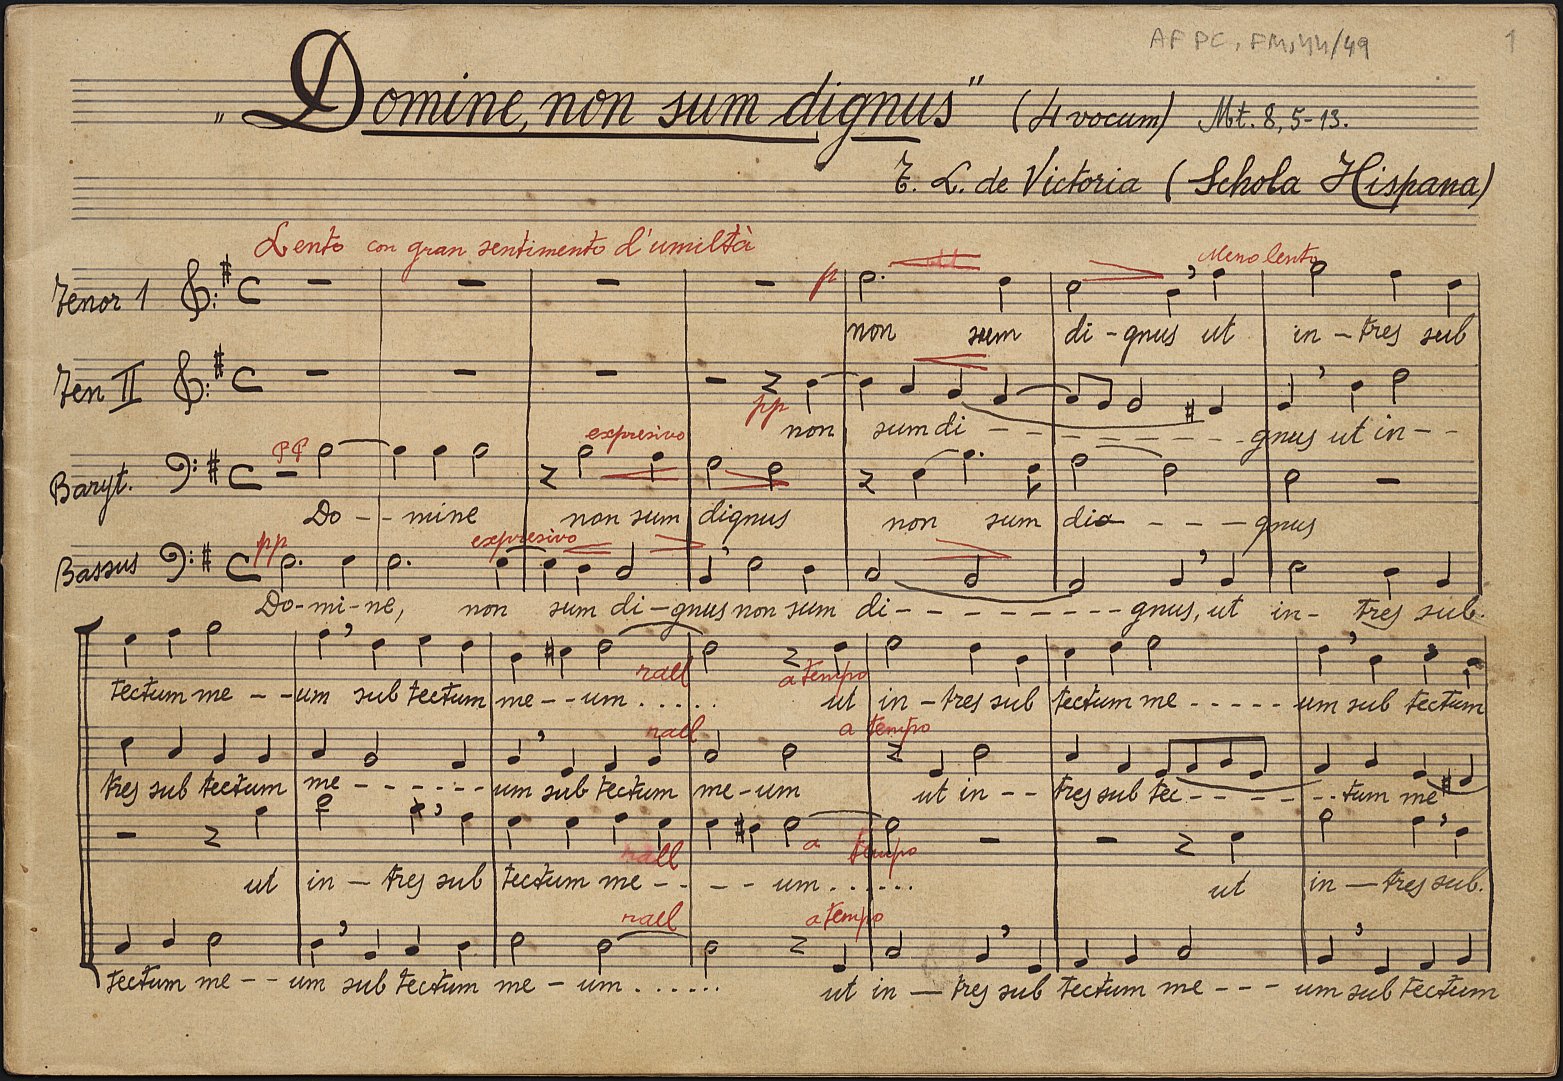 AFPC, FM, 44/49 1
„Domine, non sum dignus" (4 vocum) Mt. 8, 5-13.
T. L. de Victoria (Schola Hispana)
Lento con gran sentimento d'umiltà
p Meno lento
Tenor 1
non sum di - gnus ut in - tres sub
Ten II
pp
non sum di - - - - - - - - - gnus ut in - -
pp expresivo
Baryt.
Do - - mine non sum dignus non sum dio - - - - gnus
pp expresivo
Bassus
Do-mi-ne, non sum di-gnus non sum di - - - - - - - - gnus, ut in- tres sub.
rall a tempo
tectum me - - um sub tectum me - - um . . . . . . ut in - tres sub tectum me - - - - - um sub tectum
rall a tempo
tres sub tectum me - - - - - - um sub tectum me-um ut in - - tres sub tec - - - - - - tum me
rall a tempo
ut in - tres sub tectum me - - - - um . . . . . . ut in - tres sub.
rall a tempo
tectum me - - um sub tectum me - um . . . . . . ut in - tres sub tectum me - - - um sub tectum